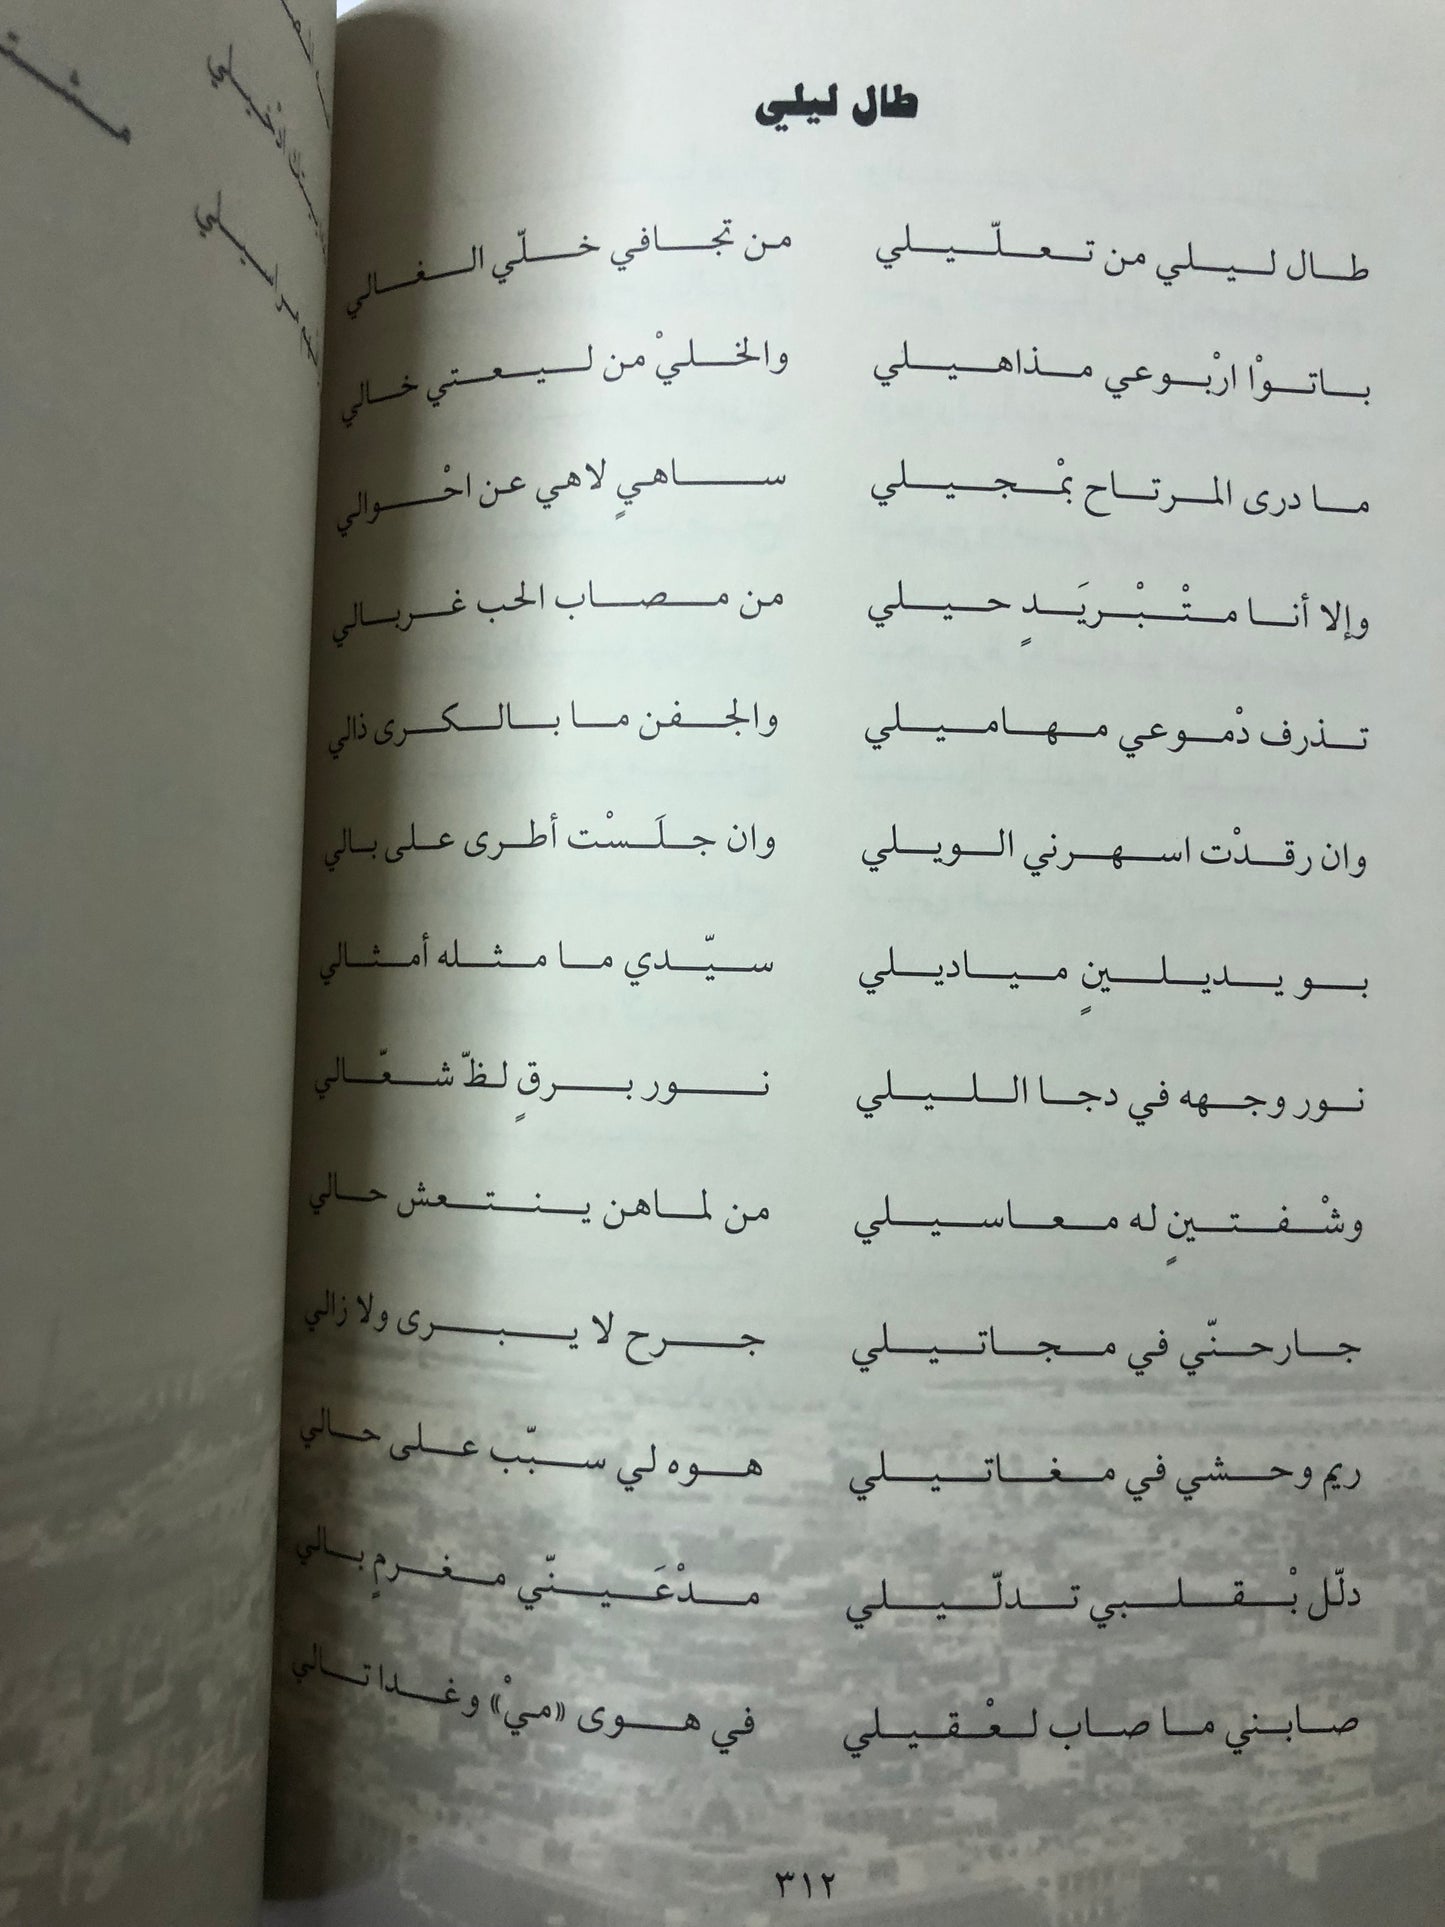 طال ليلي
طال ليلي من تعلّيلي من تجافي خلّي الغالي
باتوْا ارْبوعي مذاهيلي والخليْ من ليعتي خالي
ما درى المرتاح بمْجيلي ساهيٍ لاهي عن احْوالي
وإلا أنا متْبْريَدٍ حيلي من مصاب الحب غربالي
تذرف دْموعي مهاميلي والجفن ما بالكرى ذالي
وان رقدْت اسهرني الويلي وان جلَسْت أطرى على بالي
بو يديلينٍ مياديلي سيّدي ما مثله أمثالي
نور وجهه في دجا الليلي نور برقٍ لظّ شعّالي
وشْفتينٍ له معاسيلي من لماهن ينتعش حالي
جارحنّي في مجاتيلي جرح لا يبرى ولا زالي
ريم وحشي في مغاتيلي هوه لي سبّب على حالي
دلّل بْقلبي تدلّيلي مدْعَينّي مغرمٍ بالي
صابني ما صاب لعْقيلي في هوى «ميْ» وغدا تالي
٣١٢